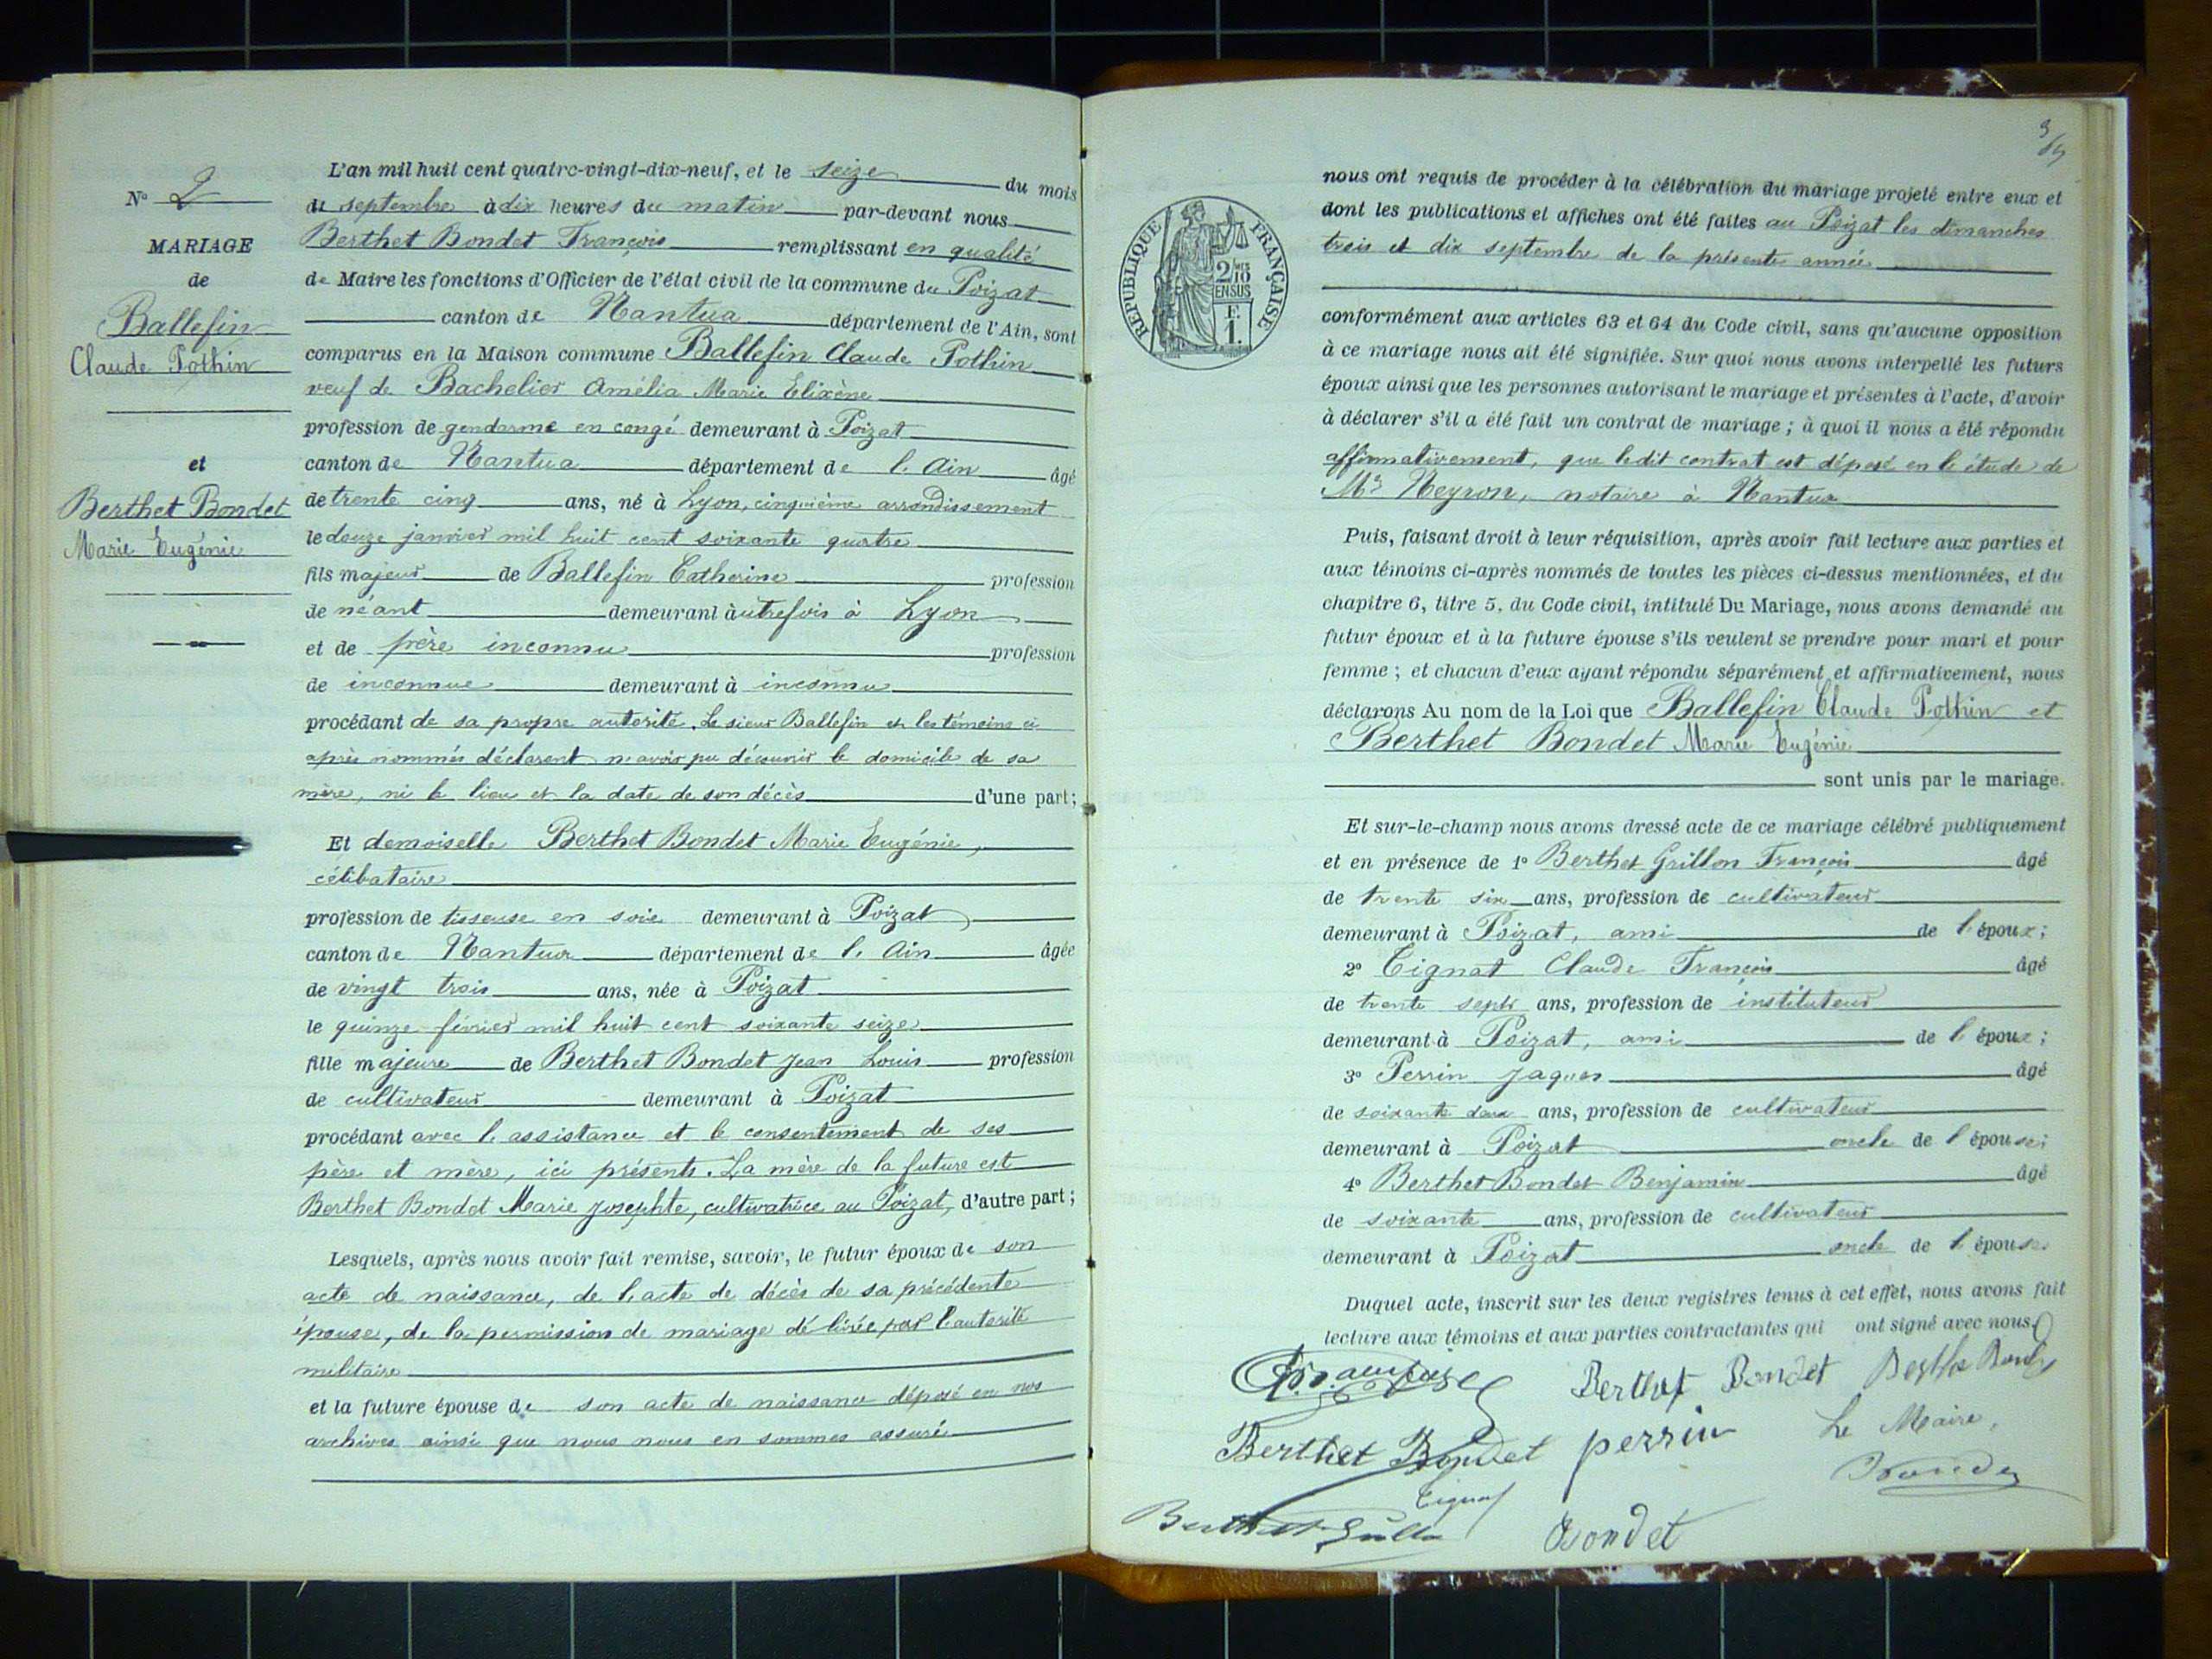 N° 2
MARIAGE
de
Ballefin
Claude Pothin
et
Berthet Bondet
Marie Eugénie
L'an mil huit cent quatre-vingt-dix-neuf, et le seize du mois
de septembre à dix heures du matin par-devant nous
Berthet Bondet François remplissant en qualité
de Maire les fonctions d'Officier de l'état civil de la commune du Poizat
canton de Nantua département de l'Ain, sont
comparus en la Maison commune Ballefin Claude Pothin
veuf de Bachelier Amélia Marie Elixène
profession de gendarme en congé demeurant à Poizat
canton de Nantua département de l'Ain âgé
de trente cinq ans, né à Lyon, cinquième arrondissement
le douze janvier mil huit cent soixante quatre
fils majeur de Ballefin Catherine profession
de néant demeurant autrefois à Lyon
et de père inconnu profession
de inconnue demeurant à inconnu
procédant de sa propre autorité. Le sieur Ballefin et les témoins ci
après nommés déclarent n'avoir pu découvrir le domicile de sa
mère, ni le lieu et la date de son décès d'une part;
Et demoiselle Berthet Bondet Marie Eugénie,
célibataire
profession de tisseuse en soie demeurant à Poizat
canton de Nantua département de l'Ain âgée
de vingt trois ans, née à Poizat
le quinze février mil huit cent soixante seize
fille majeure de Berthet Bondet Jean Louis profession
de cultivateur demeurant à Poizat
procédant avec l'assistance et le consentement de ses
père et mère, ici présents. La mère de la future est
Berthet Bondet Marie Josephte, cultivatrice au Poizat, d'autre part;
Lesquels, après nous avoir fait remise, savoir, le futur époux de son
acte de naissance, de l'acte de décès de sa précédente
épouse, de la permission de mariage délivrée par l'autorité
militaire
et la future épouse de son acte de naissance déposé en nos
archives ainsi que nous nous en sommes assuré
RÉPUBLIQUE FRANÇAISE
2/10
EN SUS
F.
1.
nous ont requis de procéder à la célébration du mariage projeté entre eux et
dont les publications et affiches ont été faites au Poizat les dimanches
trois et dix septembre de la présente année
conformément aux articles 63 et 64 du Code civil, sans qu'aucune opposition
à ce mariage nous ait été signifiée. Sur quoi nous avons interpellé les futurs
époux ainsi que les personnes autorisant le mariage et présentes à l'acte, d'avoir
à déclarer s'il a été fait un contrat de mariage; à quoi il nous a été répondu
affirmativement, que ledit contrat est déposé en le étude de
Mr Neyron, notaire à Nantua
Puis, faisant droit à leur réquisition, après avoir fait lecture aux parties et
aux témoins ci-après nommés de toutes les pièces ci-dessus mentionnées, et du
chapitre 6, titre 5, du Code civil, intitulé Du Mariage, nous avons demandé au
futur époux et à la future épouse s'ils veulent se prendre pour mari et pour
femme; et chacun d'eux ayant répondu séparément et affirmativement, nous
déclarons Au nom de la Loi que Ballefin Claude Pothin et
Berthet Bondet Marie Eugénie
sont unis par le mariage.
Et sur-le-champ nous avons dressé acte de ce mariage célébré publiquement
et en présence de 1° Berthet Grillon François âgé
de trente six ans, profession de cultivateur
demeurant à Poizat, ami de l'époux;
2° Tignat Claude François âgé
de trente sept ans, profession de instituteur
demeurant à Poizat, ami de l'époux;
3° Perrin Jaques âgé
de soixante deux ans, profession de cultivateur
demeurant à Poizat oncle de l'épouse;
4° Berthet Bondet Benjamin âgé
de soixante ans, profession de cultivateur
demeurant à Poizat oncle de l'épouse
Duquel acte, inscrit sur les deux registres tenus à cet effet, nous avons fait
lecture aux témoins et aux parties contractantes qui ont signé avec nous.
Berthet Bondet
Berthet Bondet perrin Le Maire,
Tignat Bondet
Bondet